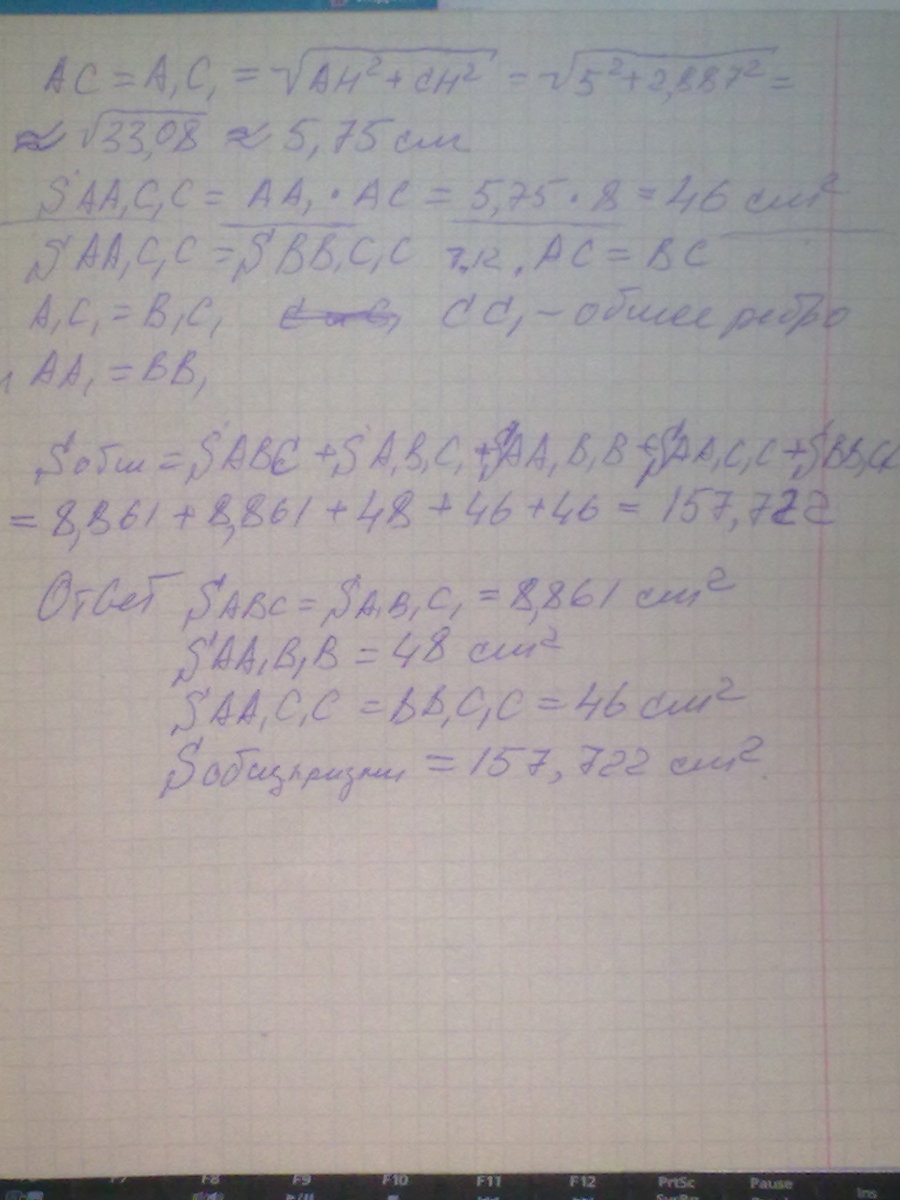 AC = A₁C₁ = √AH² + CH² = √5² + 2,887² =
≈ √33,08 ≈ 5,75 см
SAA₁C₁C = AA₁ · AC = 5,75 · 8 = 46 см²
SAA₁C₁C = SBB₁C₁C т.к. AC = BC
A₁C₁ = B₁C₁ CC₁ – общее ребро
и AA₁ = BB₁
Sобщ = SABC + SA₁B₁C₁ + SAA₁B₁B + SAA₁C₁C + SBB₁C₁C
= 8,861 + 8,861 + 48 + 46 + 46 = 157,722
Ответ SABC = SA₁B₁C₁ = 8,861 см²
SAA₁B₁B = 48 см²
SAA₁C₁C = BB₁C₁C = 46 см²
Sобщ призмы = 157,722 см²
F8 F9 F10 F11 F12 PrtSc Pause
Ins